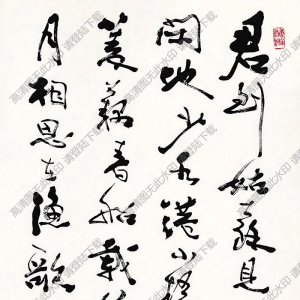 君到姑蘇見
閑地少水港小橋
菱藕春船載
月相思在漁歌
高清图无此水印 请登陆下载